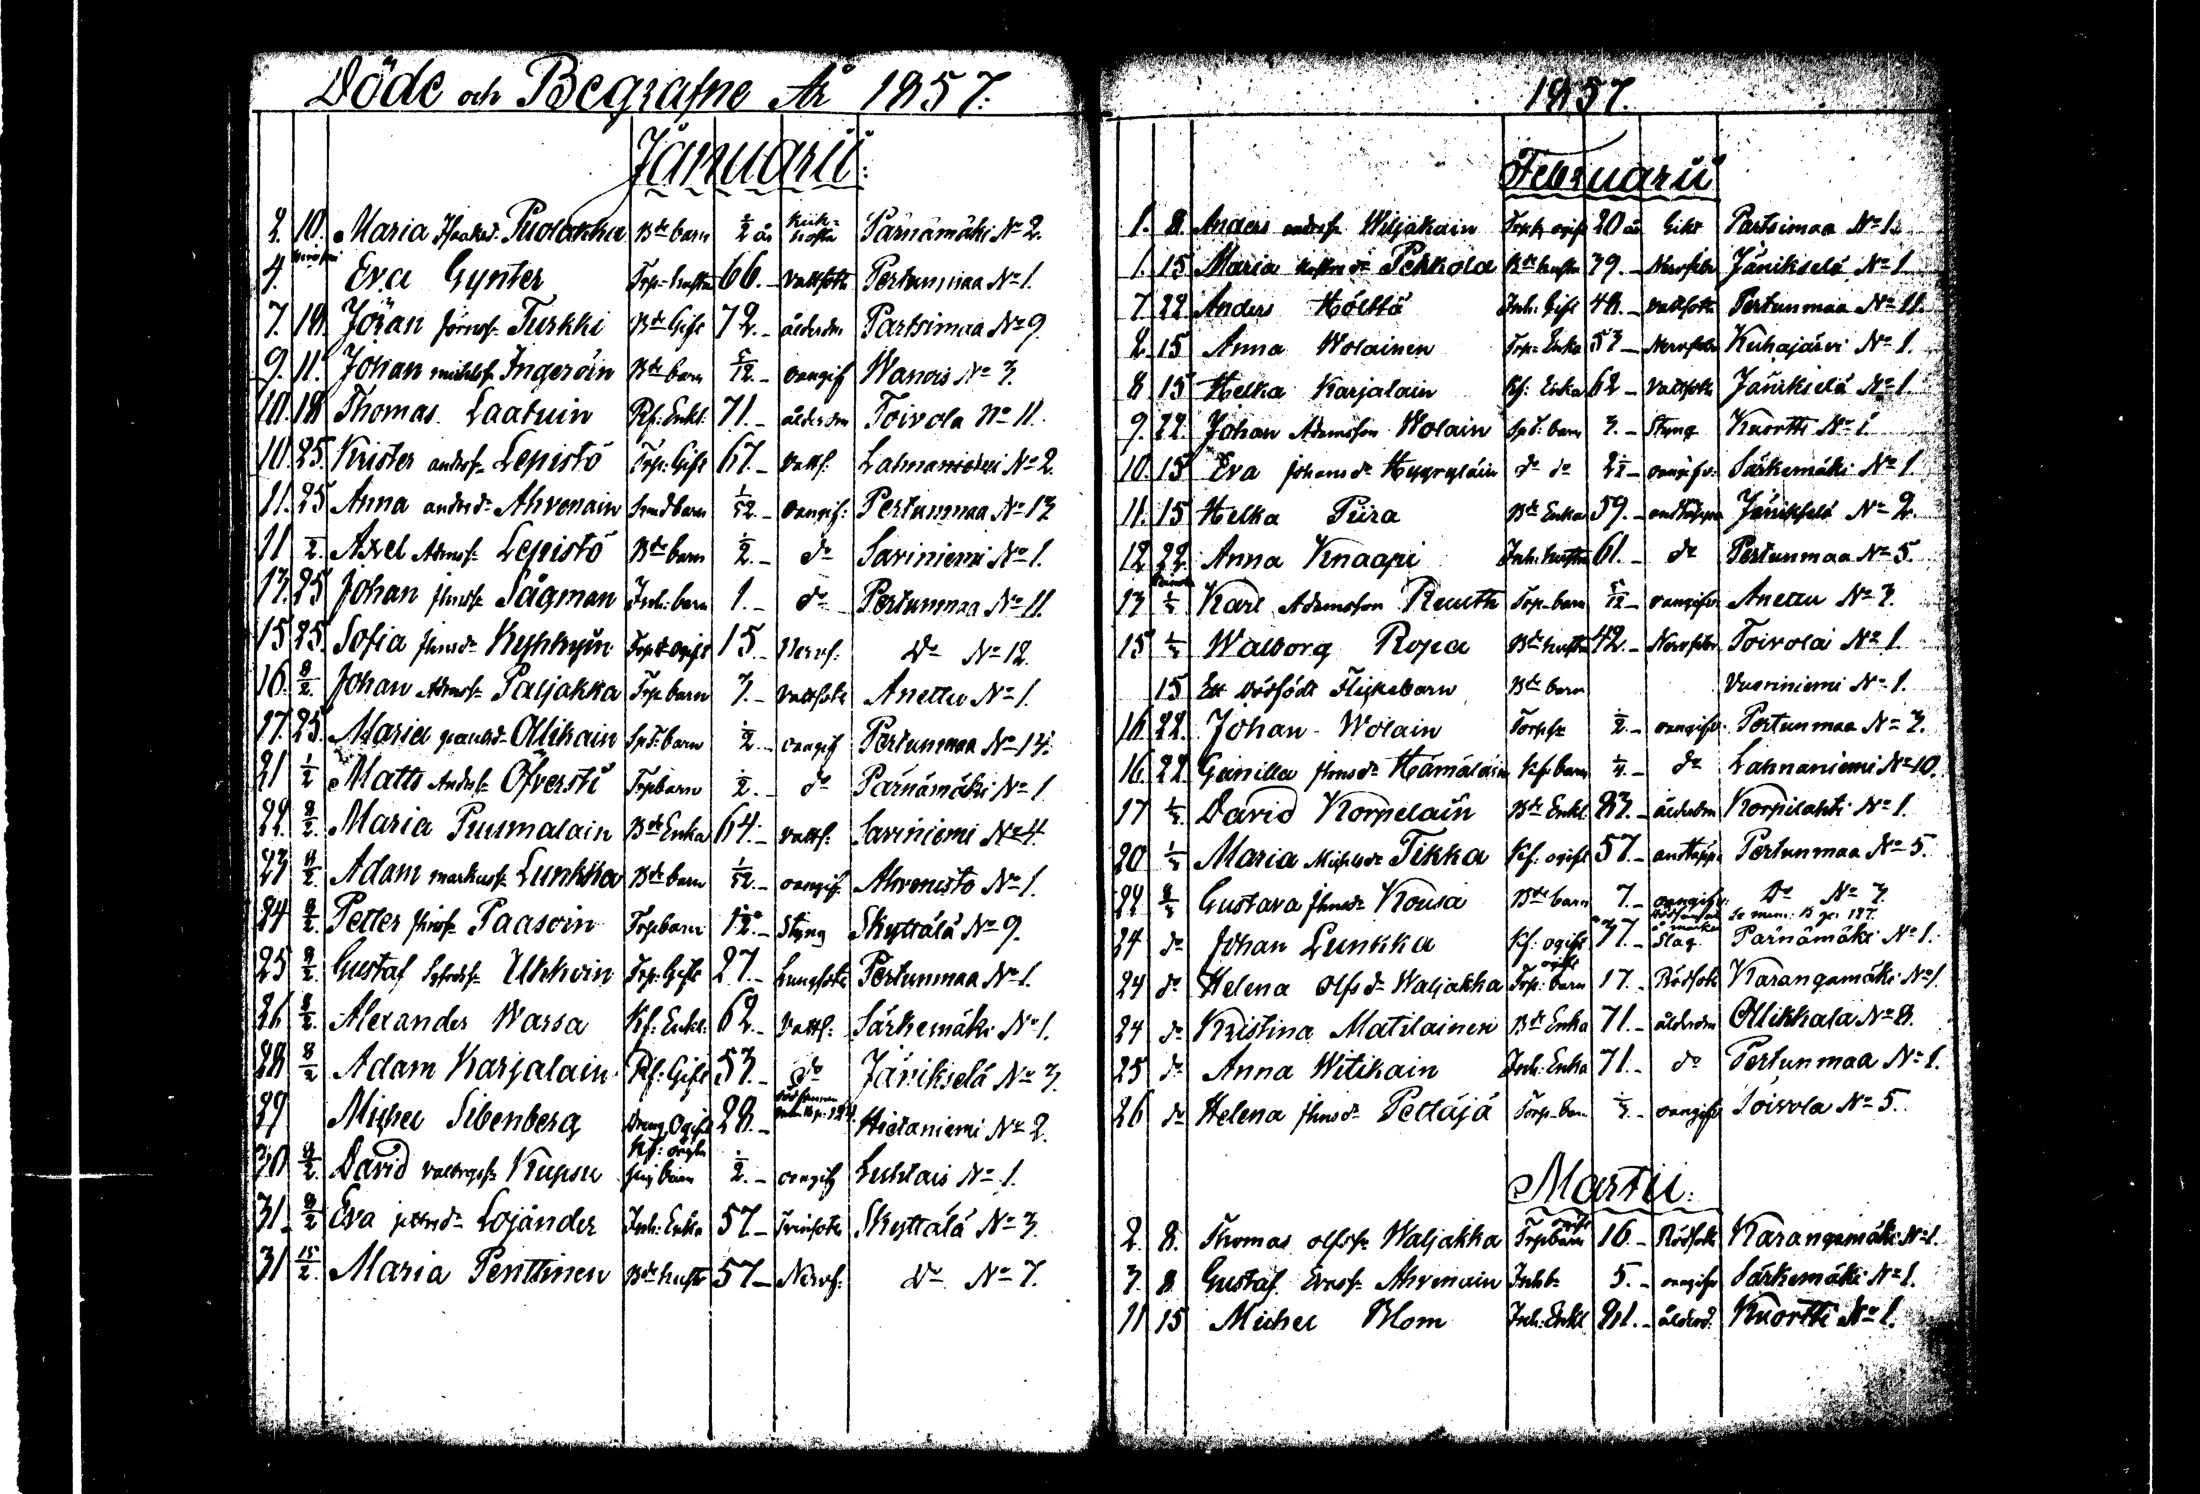 Döde och Begrafne År 1857.
Januarii:
2. 10. Maria Isaksd. Puolakka Bde barn ½ år Kikhosta Pärnämäki No 2.
4. Eva Gynter Trp-hustru 66. – vattsot Pertunmaa No 1.
7. 18. Jöran Jörnss. Turkki Bde Gift 72. – ålderdm Partsimaa No 9.
9. 11. Johan michelss. Ingeröin Bde barn 5/12. – oangif Wanois No 3.
10. 18 Thomas Laatuin Rf: Enkl: 71. – ålderdm Toivola No 11.
10. 25. Krister anderss. Lepistö Trp: Gift 67. – vatts. Lahnaniemi No 2.
11. 25 Anna andersdr Ahvenain barn 1/52. – oangif: Pertunmaa No 13
11 Axel Admss. Lepistö Bde barn ½. – do Saviniemi No 1.
13. 25 Johan Jhnss. Sågman Inh: barn 1. – do Pertunmaa No 11.
15 25. Sofia Jhnsdr Kyhkyin ogift 15. – Nervf: Do No 12.
16. 8/2. Johan Admss. Paljakka Trp barn 3. – vattsot Anettu No 1.
17. 25. Maria Ollikain Spt: barn ½. – oangif Pertunmaa No 14.
21 1/2 Matts Anderss. Öfversti Trpbarn ½. – do Pärnämäki No 1
22. 8/2. Maria Puumalain Bde Enka 64. – vatts. Saviniemi No 4
23 8/2. Adam markuss. Lunkka Bde barn 1/52. – oangif Ahvenisto No 1.
24 8/2. Petter Jhnss. Paasoin Trpbarn Styng Skyttälä No 9.
25 8/2. Gustaf Ukkoin Trp: Gift 27. – Lungsot Pertunmaa No 1.
26 8/2. Alexander Warsa Kf: Enkl: 62. – vatts: Särkemäki No 1.
28 8/2 Adam Karjalain Rf: Gift 53. – do Järikselä No 3.
29 Michel Sibenberg Dreng Ogift 28. – Hietaniemi No 2.
30 8/2. David valborgss. Kupsu barn ½. – oangif Luhtais No 1.
31 8/2 Eva pettersdr Lojander Inh: Enka 57 – Tvinsot Skyttälä No 3.
31 15/2. Maria Penttinen Bde hustr 57 – Nervf: Do No 7.
1857.
Februarii
1. 8. Anders anderss. Wiljakain ogift 20 år Partsimaa No 1.
1. 15 Maria Pekkola Bde hustru 39. – Nervfeb Järikselä No 1
7. 22. Anders Hölttä Inh: Gift 48. – vattsot Pertunmaa No 11.
8. 15 Anna Wolainen Trp: Enka 53 – Nervfeb Kuhajärvi No 1.
8 15 Helka Karjalain Kf: Enka 62 – vattsot Järikselä No 1.
9. 22. Johan Adamsson Wolain Spt: barn 3. – Styng Kuortti No 1.
10. 15 Eva Johansdr Hyyryläin do do – oangifv. Särkemäki No 1.
11. 15 Helka Piira Bde Enka 59. – andtäppa Järikselä No 2.
12 22. Anna Knaapi Inh: hustru 61. – do Pertunmaa No 5.
13 1/3 Karl Adamsson Reuth Trp-barn 5/12 – oangifv Anettu No 3.
15 1/3 Walborg Ropa Bde hustru 42. – Nervfebr Toivola No 1.
15 Ett dödfödt Flickebarn Bde barn Vuoriniemi No 1.
16. 22. Johan Wolain ½. – oangifv. Pertunmaa No 3.
16. 22. Gunilla Jhnsdr Hämäläin Kf: barn ¼. – do Lahnaniemi No 10.
17 1/3. David Korpelain Bde Enkl 83. – ålderdm Korpilahti No 1.
20 1/3 Maria Michelsdr Tikka Kf: ogift 57. – andtäppa Pertunmaa No 5.
22 8/3 Gustava Jhnsdr Kousa Bde barn 7. – oangifv. Do No 3.
24 do Johan Lunkka Kf: ogift 37. – Slag Pärnämäki No 1.
24 do Helena Olfsdr Waljakka Trp: barn 17. – Rödsot Karangamäki No 1
24 do Kristina Matilainen Bde Enka 71. – ålderdm Ollikkala No 8.
25 do Anna Witikain Inh: Enka 71. – do Pertunmaa No 1.
26 do Helena Jhnsdr Pettäjä Torp-bar – oangifv Toivola No 5.
Martii:
2. 8. Thomas olfss. Waljakka Trpbarn 16. – Rödsot Karangamäki No 1.
3. 8 Gustaf Evass. Ahvenain Inhb: 5. – oangifv Särkemäki No 1.
11 15 Michel Blom Inh: Enkl 81. – ålderd. Kuortti No 1.